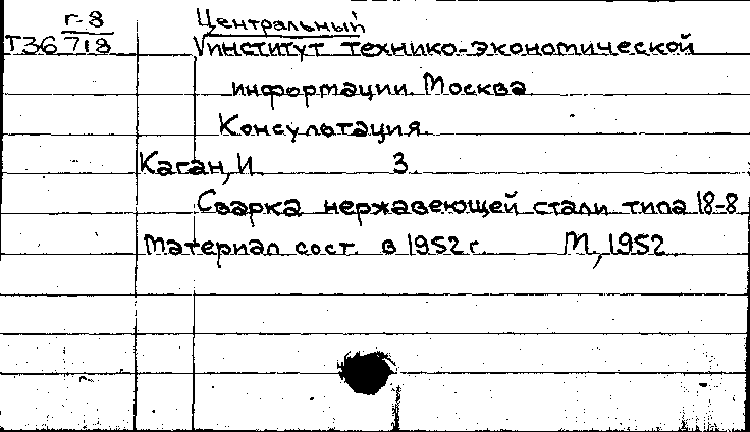 Г-8
Т36 718
Центральный
институт технико-экономической
информации. Москва
Консультация.
Каган, И. 3.
Сварка нержавеющей стали типа 18-8
Материал сост. в 1952 г. М, 1952